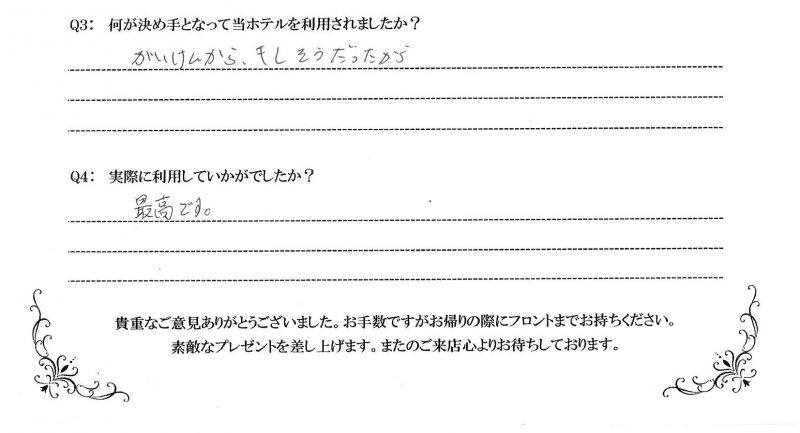 Q3: 何が決め手となって当ホテルを利用されましたか?
がいけんから、そうだったから
Q4: 実際に利用していかがでしたか?
最高です。
貴重なご意見ありがとうございました。お手数ですがお帰りの際にフロントまでお持ちください。
素敵なプレゼントを差し上げます。またのご来店心よりお待ちしております。